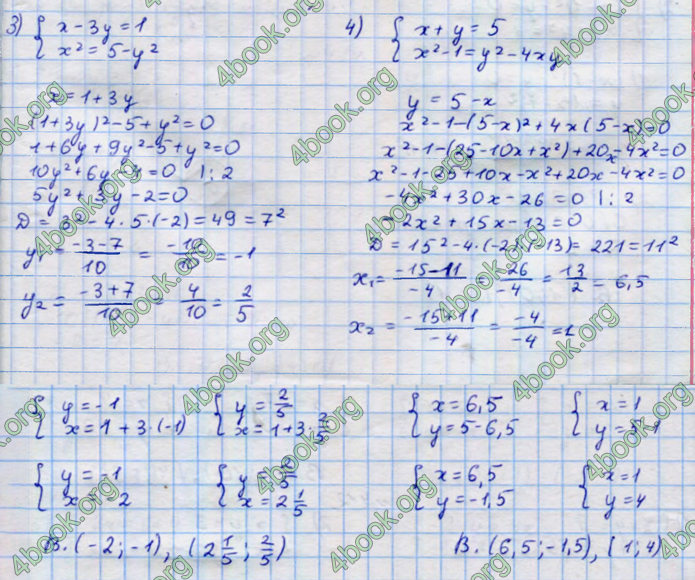 3) { x - 3y = 1
x² = 5 - y²
x = 1 + 3y
(1+3y)² - 5 + y² = 0
1 + 6y + 9y² - 5 + y² = 0
10y² + 6y - 4 = 0 | : 2
5y² + 3y - 2 = 0
D = 3² - 4 · 5 · (-2) = 49 = 7²
y₁ = (-3-7)/10 = -10/10 = -1
y₂ = (-3+7)/10 = 4/10 = 2/5
4) { x + y = 5
x² - 1 = y² - 4xy
y = 5 - x
x² - 1 - (5-x)² + 4x(5-x) = 0
x² - 1 - (25 - 10x + x²) + 20x - 4x² = 0
x² - 1 - 25 + 10x - x² + 20x - 4x² = 0
-4x² + 30x - 26 = 0 | : 2
-2x² + 15x - 13 = 0
D = 15² - 4 · (-2)(-13) = 221 = 11²
x₁ = (-15-11)/-4 = -26/-4 = 13/2 = 6,5
x₂ = (-15+11)/-4 = -4/-4 = 1
{ y = -1
x = 1 + 3 · (-1)
{ y = 2/5
x = 1 + 3 · 2/5
{ x = 6,5
y = 5 - 6,5
{ x = 1
y = 5 - 1
{ y = -1
x = -2
{ y = 2/5
x = 2 1/5
{ x = 6,5
y = -1,5
{ x = 1
y = 4
В. (-2; -1), (2 1/5; 2/5)
В. (6,5; -1,5), (1; 4)
4book.org